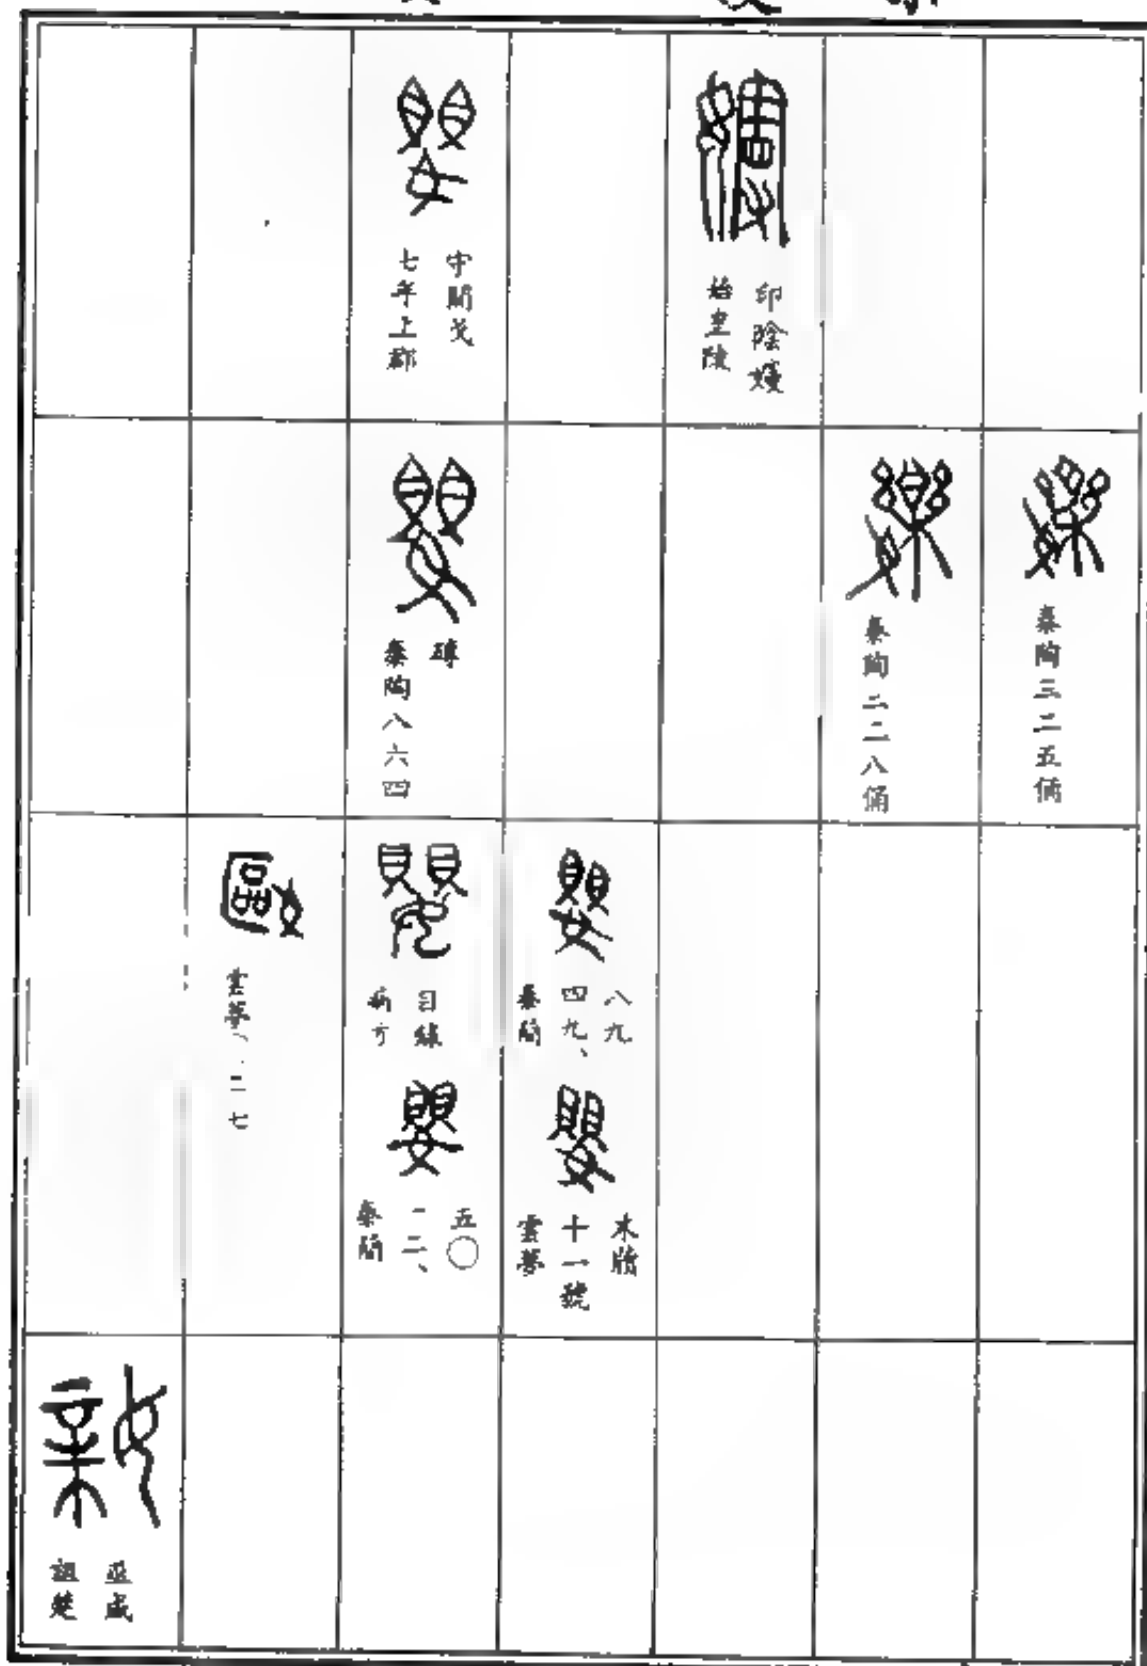 秦陶三二五俑
秦陶二二八俑
嫚
始皇陵
印陰嫚
嬰
秦簡
四九、
八九
嬰
雲夢
十一號
木牘
嬰
七年上郡
守閒戈
嬰
秦陶八六四
磚
嬰
病方
目錄
嬰
秦簡
一二、
五〇
嫗
雲夢
詛楚
巫咸